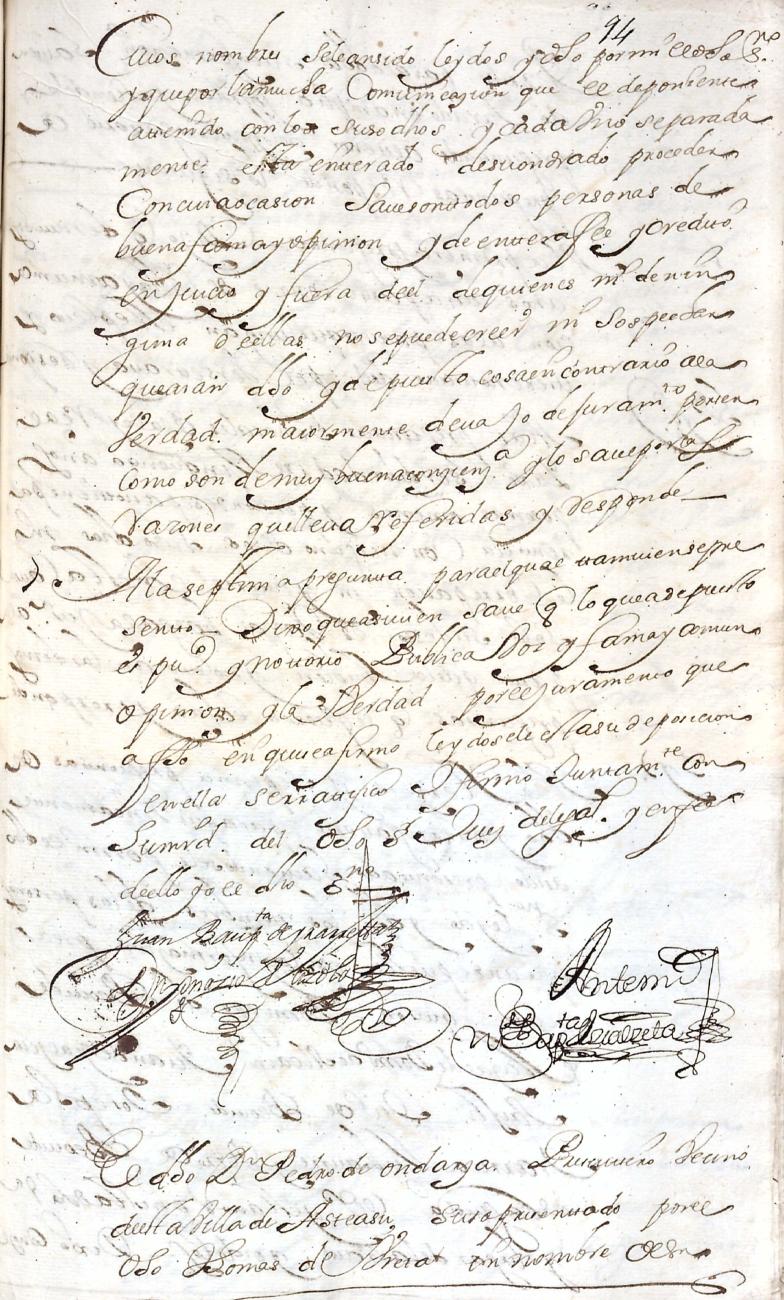 94
Cuios nombres seleansido leydos y dho por mi el dho ss.no
y que por la mucha Comunicazion que el deponiente
a tenido con los susodhos y cada Uno separada
mente esta enterado desuonrrado proceder
Con cuia ocasion Save son todos personas de
buena fama y opinion y de entera fee y Credito
en Juicio y fuera deel de quienes ni de nin
guna d'ellas no se puede creer ni Sospechar
que aian dho y depuesto cosa en contrario a la
Verdad. maiormente devajo de Juram.to por ser
como son de muy buena conzienz.a y lo save por las
Razones que lleva Referidas y Responde
7. A la septima pregunta para el qual tamvien se pre
sento Dixo que asi vien save q lo que a depuesto
es pu.co y notorio Publica Voz y fama y comun
opinion y la Verdad por el juramento que
a fho en que se afirmo leydosele esta su deposicion
y en ella se rratifico y firmo Juntam.te Con
Su mrd. del dho s.r Juez delegal. y en fee
de ello yo el dho ss.no
Juan Baup.ta de
Antemi
El dho D.n Pedro de ondarza. Presvitero Vecino
de esta Villa de Asteasu, testigo presentado por el
dho Thomas de en nombre de Dn